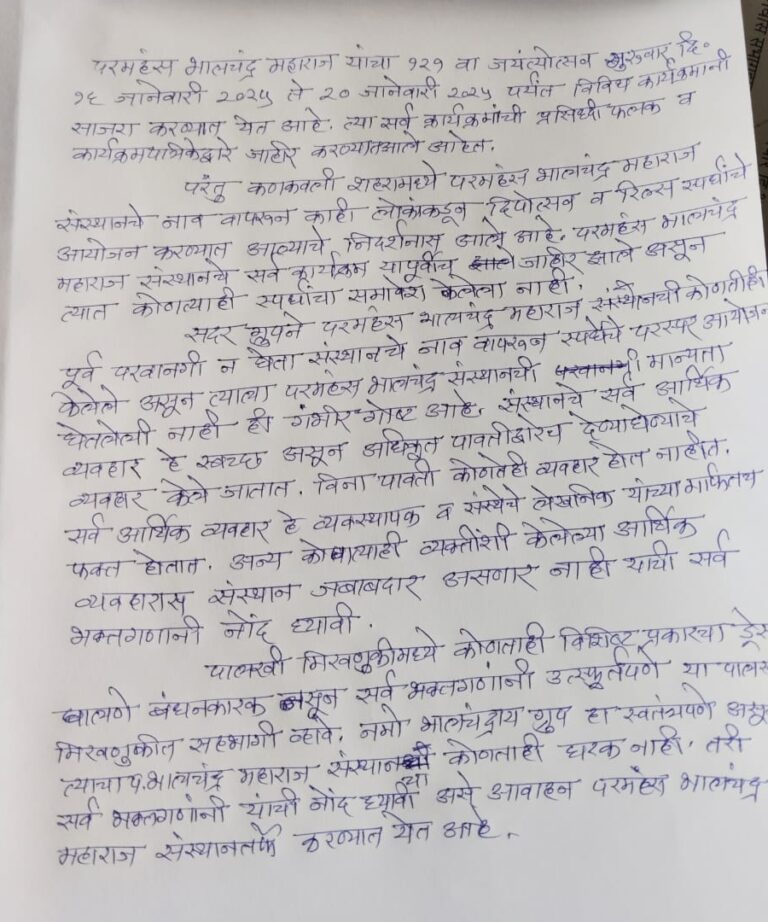 परमहंस भालचंद्र महाराज यांचा १२१ वा जयंत्योत्सव गुरुवार दि.
१६ जानेवारी २०२५ ते २० जानेवारी २०२५ पर्यंत विविध कार्यक्रमांनी
साजरा करण्यात येत आहे. त्या सर्व कार्यक्रमांची प्रसिध्दी फलक व
कार्यक्रमपत्रिकेद्वारे जाहीर करण्यातआले आहेत.
परंतु कणकवली शहरामध्ये परमहंस भालचंद्र महाराज
संस्थानचे नाव वापरून काही लोकांकडून दिपोत्सव व रिल्स स्पर्धांचे
आयोजन करण्यात आल्याचे निदर्शनास आले आहे. परमहंस भालचंद्र
महाराज संस्थानचे सर्व कार्यक्रम यापूर्वीच जाहीर झाले असून
त्यात कोणत्याही स्पर्धांचा समावेश केलेला नाही.
सदर ग्रुपने परमहंस भालचंद्र महाराज संस्थेनची कोणतीही
पूर्व परवानगी न घेता संस्थानचे नाव वापरून स्पर्धेचे परस्पर आयोजन
केलेले असून त्याला परमहंस भालचंद्र संस्थानची मान्यता
घेतलेली नाही ही गंभीर गोष्ट आहे. संस्थानचे सर्व आर्थिक
व्यवहार हे स्वच्छ असून अधिकृत पावतीद्वारेच देण्याघेण्याचे
व्यवहार केले जातात. विना पावती कोणतेही व्यवहार होत नाहीत.
सर्व आर्थिक व्यवहार हे व्यवस्थापक व संस्थेचे लेखनिक यांच्या मार्फतच
फक्त होतात. अन्य कोणत्याही व्यक्तींशी केलेल्या आर्थिक
व्यवहारास संस्थान जबाबदार असणार नाही याची सर्व
भक्तगणांनी नोंद घ्यावी.
पालखी मिरवणुकीमध्ये कोणताही विशिष्ट प्रकारचा ड्रेस
घालणे बंधनकारक नसून सर्व भक्तगणांनी उत्स्फुर्तपणे या पालख
मिरवणुकीत सहभागी व्हावे. नमो भालचंद्राय ग्रुप हा स्वतंत्रपणे असून
त्याचा प.भालचंद्र महाराज संस्थानचा कोणताही घटक नाही. तरी
सर्व भक्तगणांनी यांची नोंद घ्यावी असे आवाहन परमहंस भालचंद्र
महाराज संस्थानतर्फे करण्यात येत आहे.